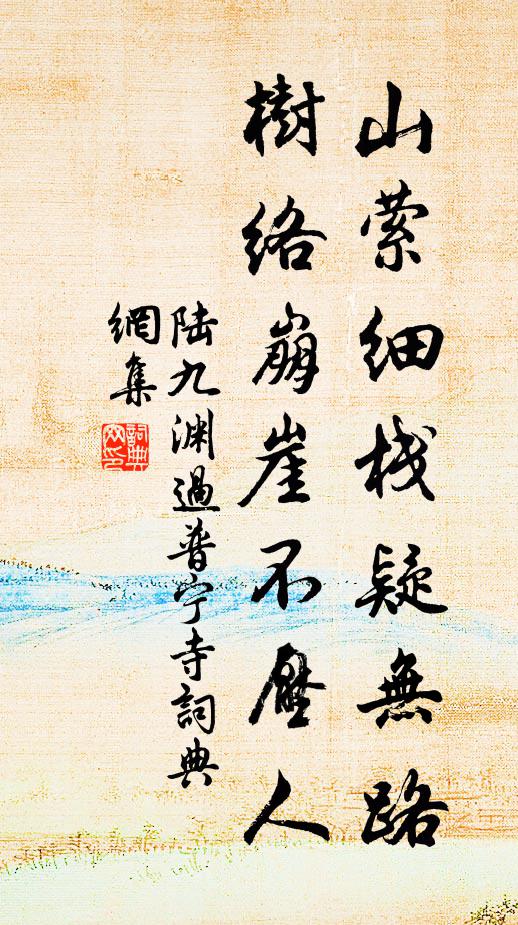 山萦细栈疑無路
樹络崩崖不壓人
陆九渊過普宁寺詞典
網集
詞典